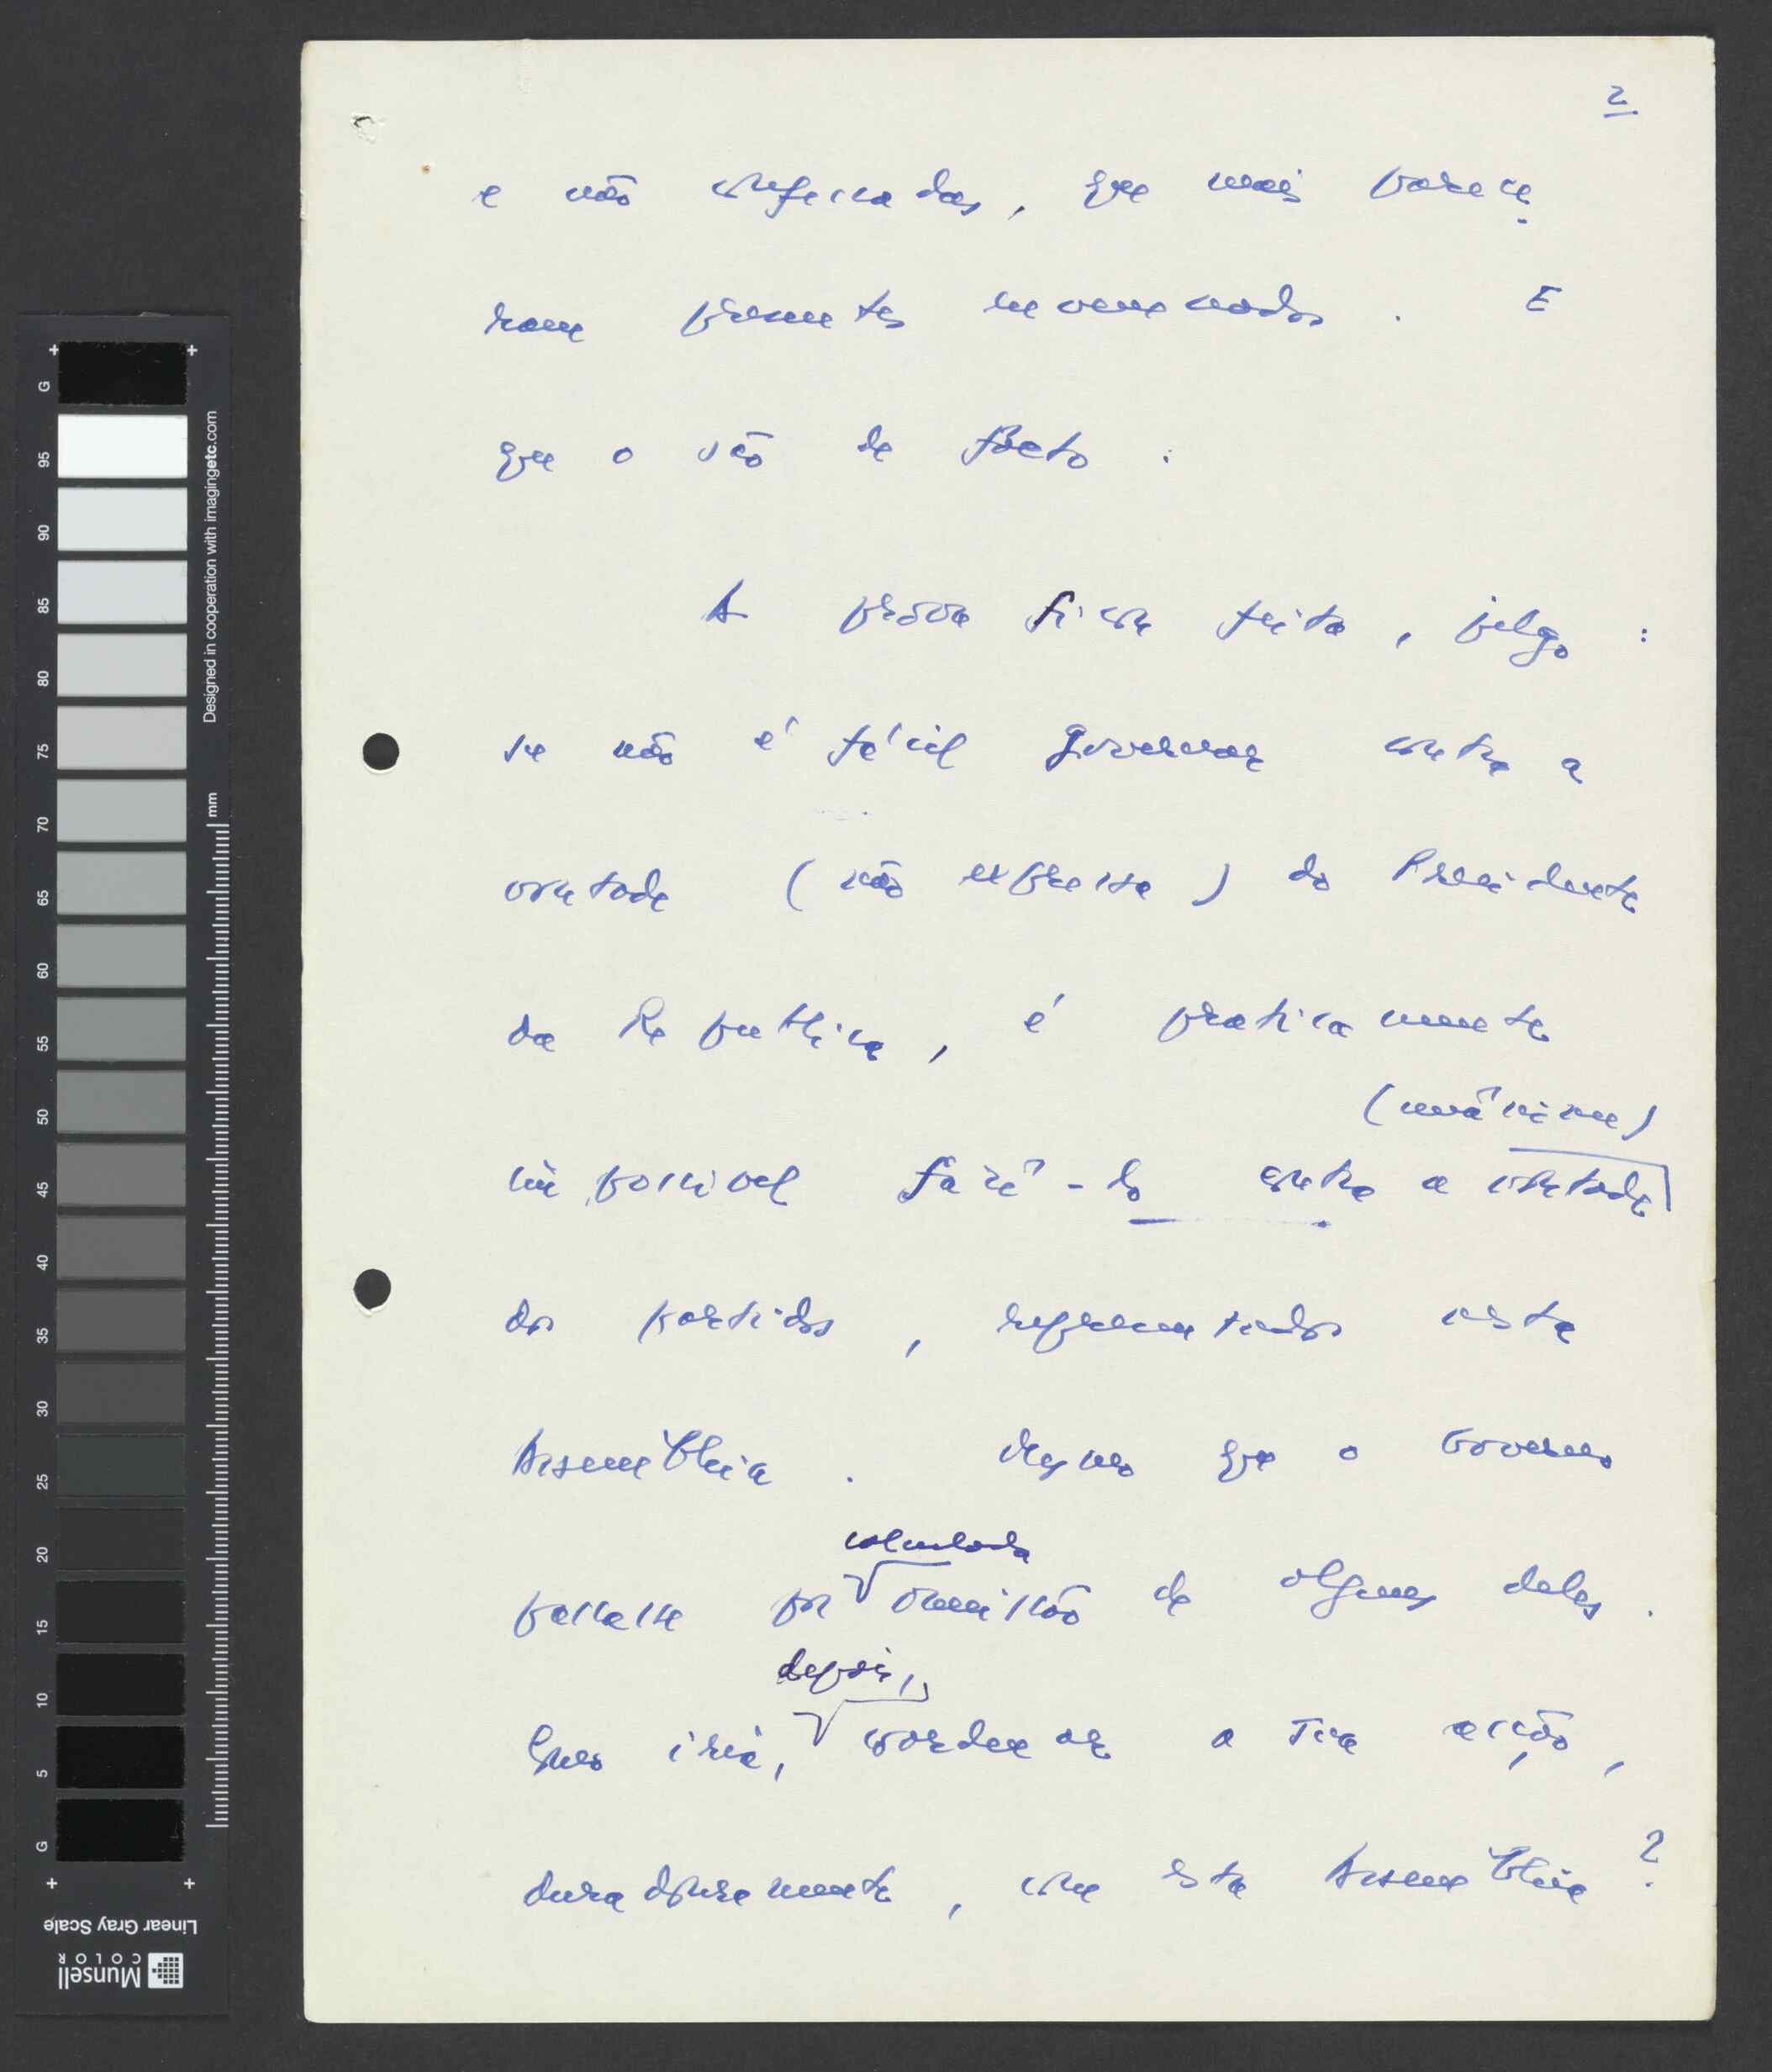 2
e não confessadas, que mais parece-
ram presentes envenenados. E
que o são de facto.
A prova ficou feita, julgo:
se não é fácil governar contra a
vontade (não expressa) do Presidente
da República, é praticamente
(unânime)
impossível fazê-lo contra a vontade
dos partidos, representados nesta
Assembleia. Mesmo que o Governo
calculada
passasse por omissão de alguns deles.
depois,
Como iria, coordenar a sua acção,
duradouramente, com esta Assembleia?
G 95 90 85 80 75 70 65 60 55 50 45 40 35 30 25 20 15 10 5 G
mm
Designed in cooperation with imagingetc.com
Linear Gray Scale
Munsell
COLOR